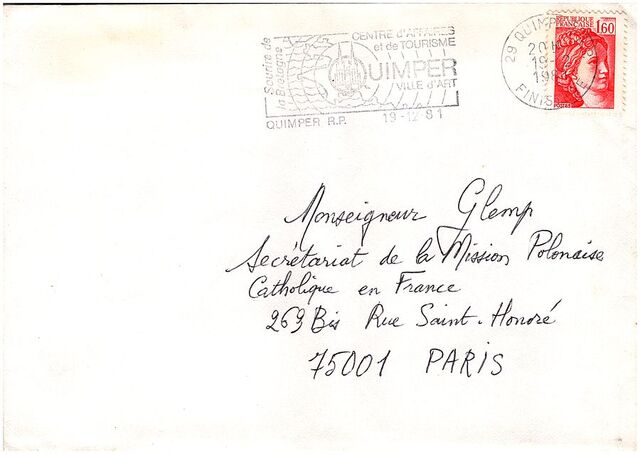 Sourire de
la Bretagne
CENTRE d'AFFAIRES
et de TOURISME
QUIMPER
VILLE d'ART
QUIMPER R.P.
19-12-81
29 QUIMP
20 H
19-
198
FINIS
RÉPUBLIQUE
FRANÇAISE
1,60
POSTES
Monseigneur Glemp
Secrétariat de la Mission Polonaise
Catholique en France
269 Bis Rue Saint-Honoré
75001 PARIS